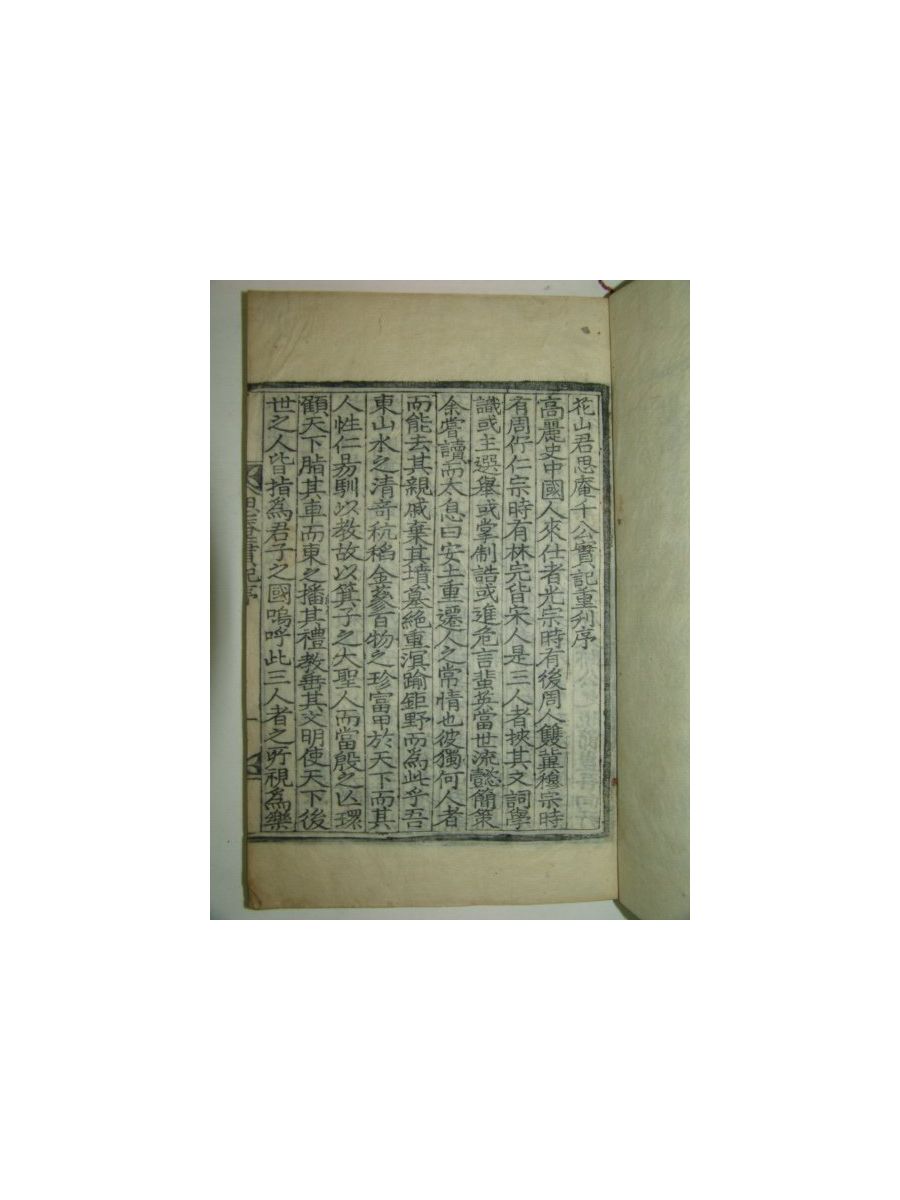 花山君思庵千公實記重刊序
高麗史中國人來仕者光宗時有後周人雙冀穆宗時
有周佇仁宗時有林完皆宋人是三人者挾其文詞學
識或主選舉或掌制誥或進危言蜚英當世流懿簡策
余嘗讀而太息曰安土重遷人之常情也彼獨何人者
而能去其親戚棄其墳墓絶重溟踰鉅野而爲此乎吾
東山水之清竒秔稻金蔘百物之珍富甲於天下而其
人性仁昜馴以教故以箕子之大聖人而當殷之亾環
顧天下脂其車而東之播其禮教垂其文明使天下後
世之人皆指爲君子之國嗚呼此三人者之所視爲樂
思菴實紀序
一